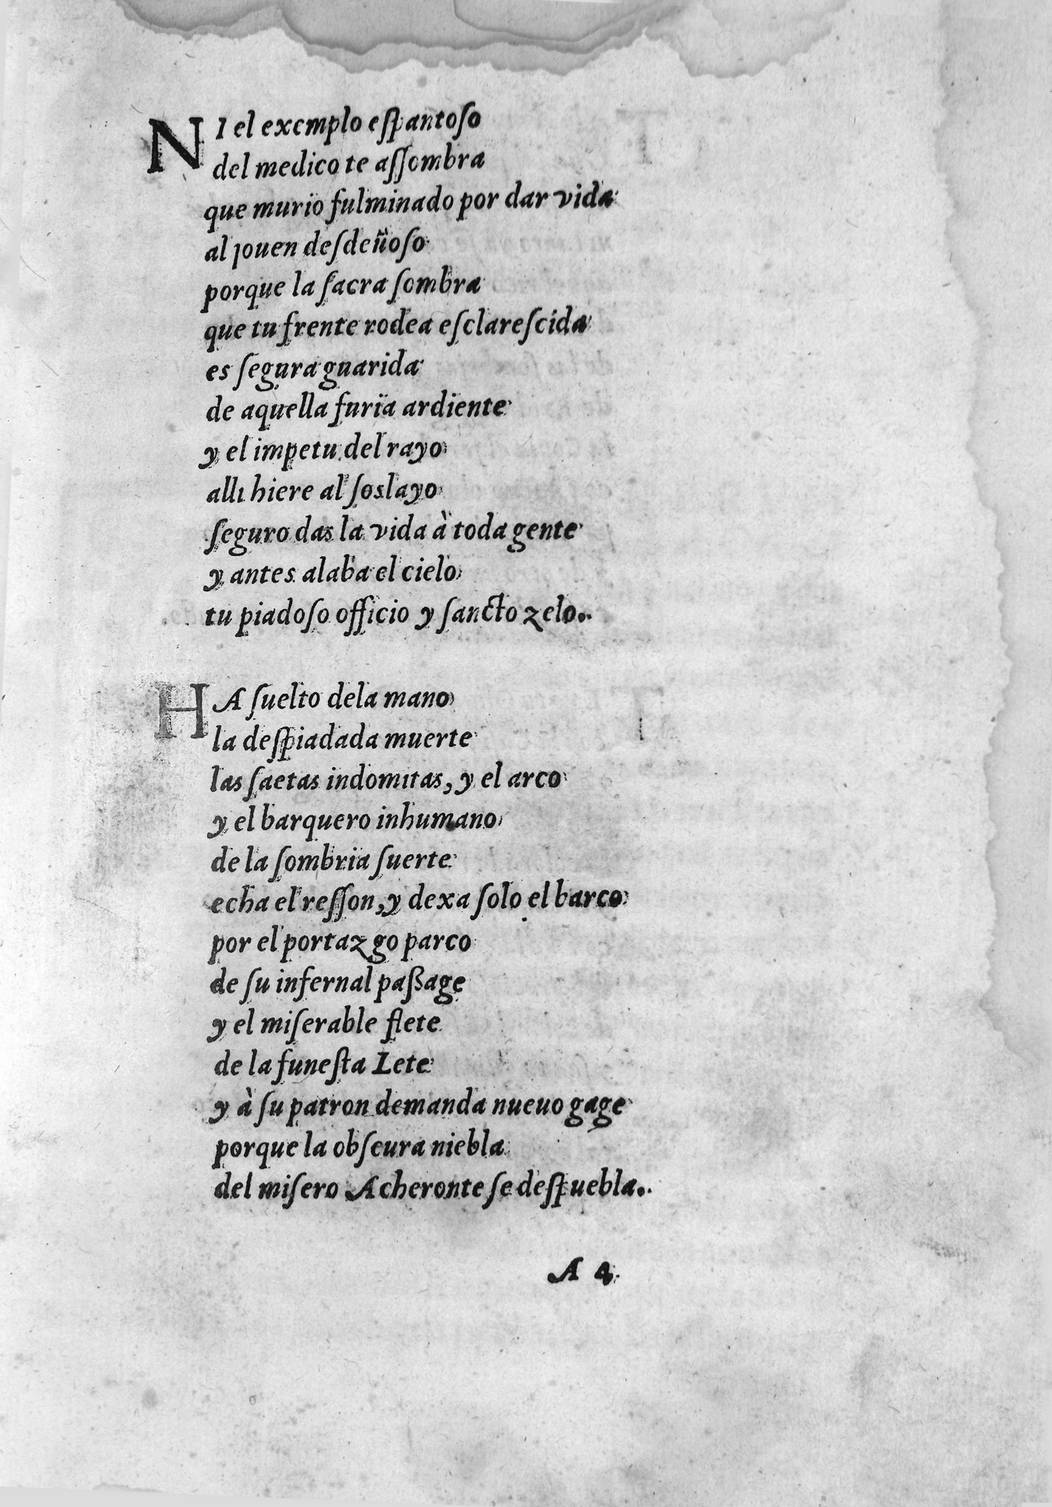 NI el exemplo espantoso
del medico te assombra
que murio fulminado por dar vida
al jouen desdeñoso
porque la sacra sombra
que tu frente rodea esclarescida
es segura guarida
de aquella furia ardiente
y el impetu del rayo
alli hiere al soslayo
seguro das la vida à toda gente
y antes alaba el cielo
tu piadoso officio y sancto zelo.
HA suelto dela mano
la despiadada muerte
las saetas indomitas, y el arco
y el barquero inhumano
de la sombria suerte
echa el resson, y dexa solo el barco
por el portazgo parco
de su infernal passage
y el miserable flete
de la funesta Lete
y à su patron demanda nueuo gage
porque la obscura niebla
del misero Acheronte se despuebla.
A 4